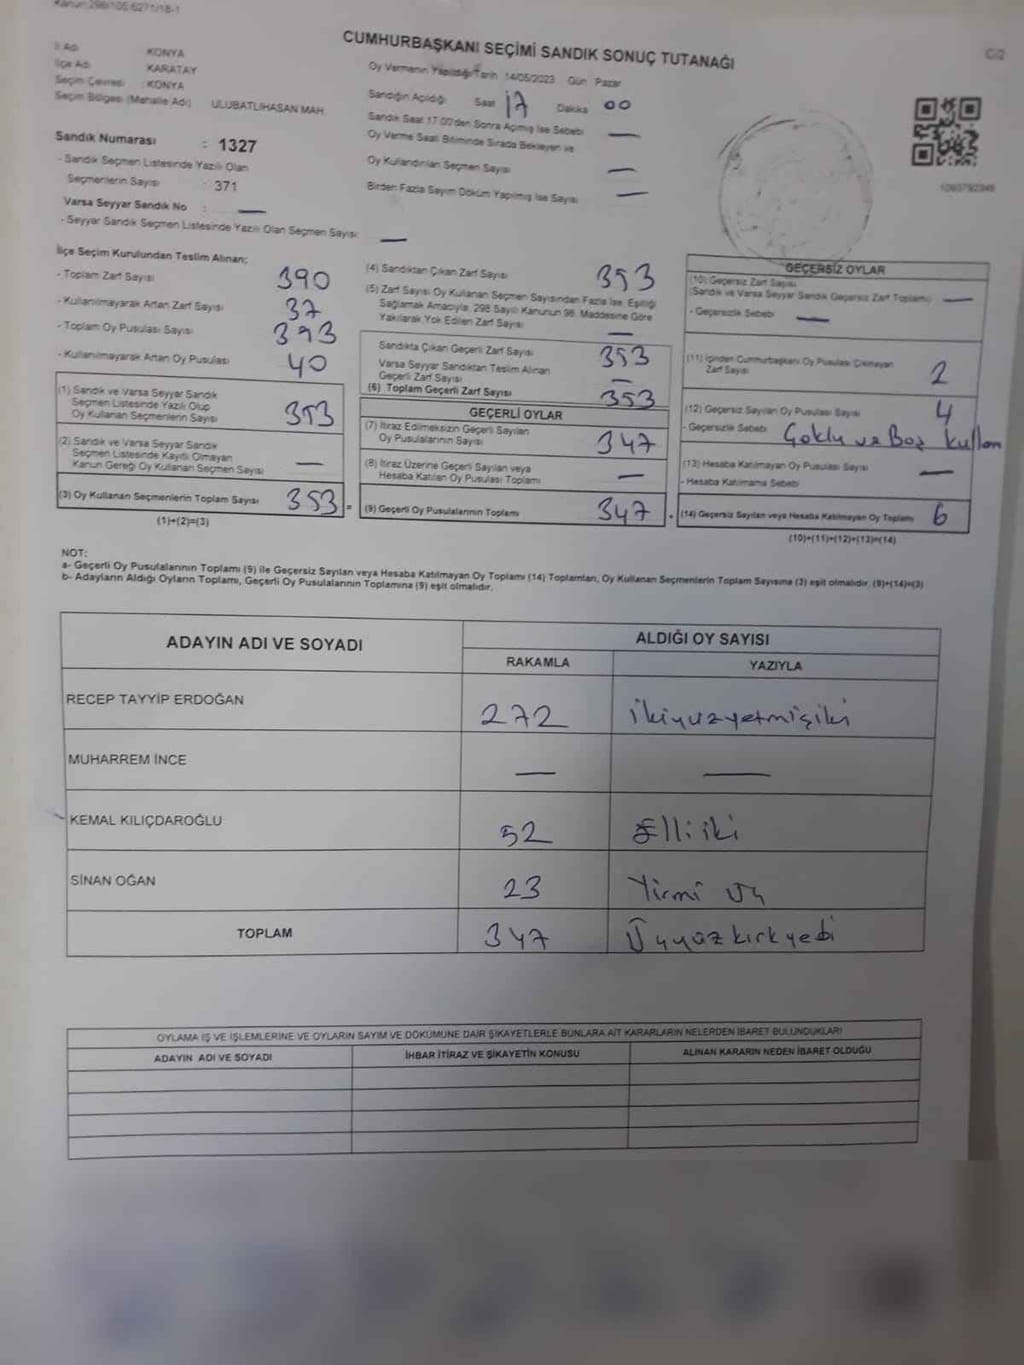 Kanun:298/105;6271/18-1
CUMHURBAŞKANI SEÇİMİ SANDIK SONUÇ TUTANAĞI
C/2
İl Adı KONYA
İlçe Adı KARATAY
Seçim Çevresi : KONYA
Seçim Bölgesi (Mahalle Adı) ULUBATLIHASAN MAH
Sandık Numarası : 1327
- Sandık Seçmen Listesinde Yazılı Olan
Seçmenlerin Sayısı : 371
Varsa Seyyar Sandık No : —
- Seyyar Sandık Seçmen Listesinde Yazılı Olan Seçmen Sayısı —
Oy Vermenin Yapıldığı Tarih 14/05/2023 Gün Pazar
Sandığın Açıldığı Saat 17 Dakika 00
Sandık Saat 17.00'den Sonra Açılmış İse Sebebi —
Oy Verme Saati Bitiminde Sırada Bekleyen ve
Oy Kullandırılan Seçmen Sayısı —
Birden Fazla Sayım Döküm Yapılmış İse Sayısı —
İlçe Seçim Kurulundan Teslim Alınan;
- Toplam Zarf Sayısı 390
- Kullanılmayarak Artan Zarf Sayısı 37
- Toplam Oy Pusulası Sayısı 393
- Kullanılmayarak Artan Oy Pusulası 40
(1) Sandık ve Varsa Seyyar Sandık
Seçmen Listesinde Yazılı Olup
Oy Kullanan Seçmenlerin Sayısı 353
(2) Sandık ve Varsa Seyyar Sandık
Seçmen Listesinde Kayıtlı Olmayan
Kanun Gereği Oy Kullanan Seçmen Sayısı —
(3) Oy Kullanan Seçmenlerin Toplam Sayısı 353 =
(1)+(2)=(3)
(4) Sandıktan Çıkan Zarf Sayısı 353
(5) Zarf Sayısı Oy Kullanan Seçmen Sayısından Fazla İse, Eşitliği
Sağlamak Amacıyla, 298 Sayılı Kanunun 98. Maddesine Göre
Yakılarak Yok Edilen Zarf Sayısı —
Sandıkta Çıkan Geçerli Zarf Sayısı 353
Varsa Seyyar Sandıktan Teslim Alınan
Geçerli Zarf Sayısı —
(6) Toplam Geçerli Zarf Sayısı 353
GEÇERLİ OYLAR
(7) İtiraz Edilmeksizin Geçerli Sayılan
Oy Pusulalarının Sayısı 347
(8) İtiraz Üzerine Geçerli Sayılan veya
Hesaba Katılan Oy Pusulası Toplamı —
(9) Geçerli Oy Pusulalarının Toplamı 347 +
GEÇERSİZ OYLAR
(10) Geçersiz Zarf Sayısı
(Sandık ve Varsa Seyyar Sandık Geçersiz Zarf Toplamı) —
- Geçersizlik Sebebi —
(11) İçinden Cumhurbaşkanı Oy Pusulası Çıkmayan
Zarf Sayısı 2
(12) Geçersiz Sayılan Oy Pusulası Sayısı 4
- Geçersizlik Sebebi Çoklu ve Boş kullan
(13) Hesaba Katılmayan Oy Pusulası Sayısı —
- Hesaba Katılmama Sebebi
(14) Geçersiz Sayılan veya Hesaba Katılmayan Oy Toplamı 6
(10)+(11)+(12)+(13)=(14)
NOT:
a- Geçerli Oy Pusulalarının Toplamı (9) ile Geçersiz Sayılan veya Hesaba Katılmayan Oy Toplamı (14) Toplamları, Oy Kullanan Seçmenlerin Toplam Sayısına (3) eşit olmalıdır. (9)+(14)=(3)
b- Adayların Aldığı Oyların Toplamı, Geçerli Oy Pusulalarının Toplamına (9) eşit olmalıdır.
ADAYIN ADI VE SOYADI
ALDIĞI OY SAYISI
RAKAMLA YAZIYLA
RECEP TAYYİP ERDOĞAN 272 ikiyüzyetmişiki
MUHARREM İNCE — —
KEMAL KILIÇDAROĞLU 52 Elli iki
SİNAN OĞAN 23 Yirmi üç
TOPLAM 347 Üçyüzkırkyedi
OYLAMA İŞ VE İŞLEMLERİNE VE OYLARIN SAYIM VE DÖKÜMÜNE DAİR ŞİKAYETLERLE BUNLARA AİT KARARLARIN NELERDEN İBARET BULUNDUKLARI
ADAYIN ADI VE SOYADI İHBAR İTİRAZ VE ŞİKAYETİN KONUSU ALINAN KARARIN NEDEN İBARET OLDUĞU